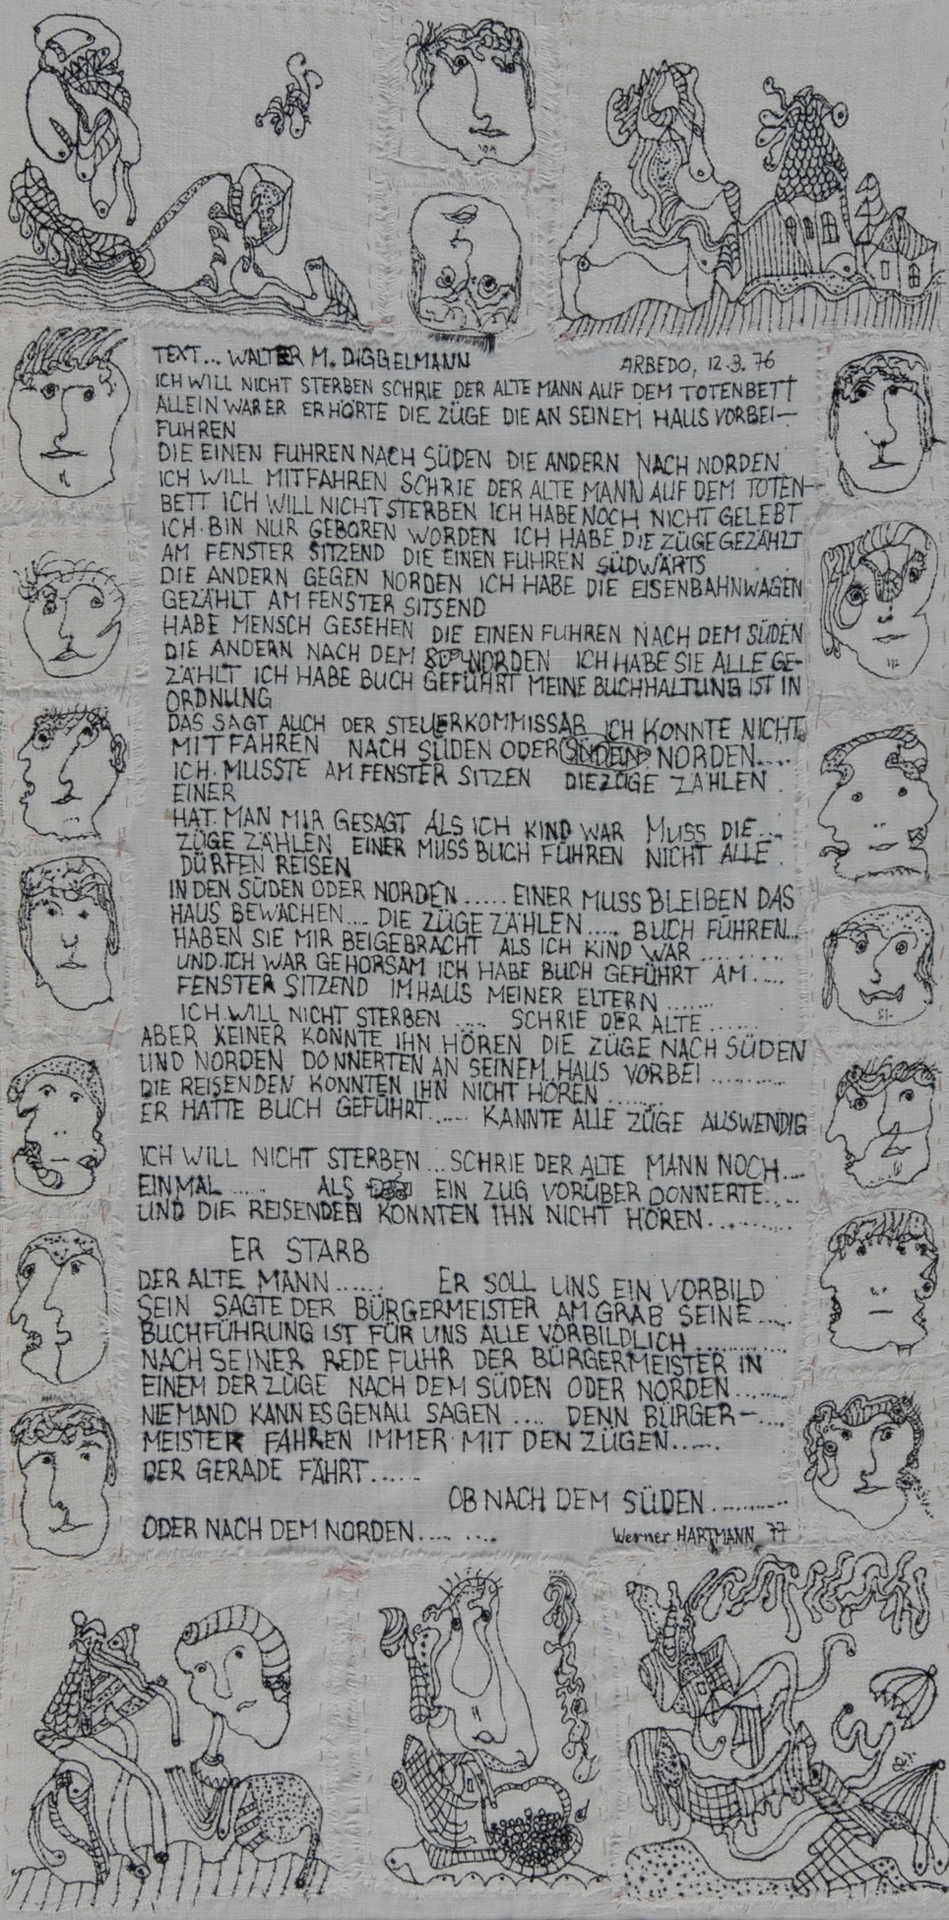 TEXT... WALTER M. DIGGELMANN ARBEDO, 12.3.76
ICH WILL NICHT STERBEN SCHRIE DER ALTE MANN AUF DEM TOTENBETT
ALLEIN WAR ER ER HÖRTE DIE ZÜGE DIE AN SEINEM HAUS VORBEI-
FUHREN
DIE EINEN FUHREN NACH SÜDEN DIE ANDERN NACH NORDEN
ICH WILL MITFAHREN SCHRIE DER ALTE MANN AUF DEM TOTEN-
BETT ICH WILL NICHT STERBEN ICH HABE NOCH NICHT GELEBT
ICH BIN NUR GEBOREN WORDEN ICH HABE DIE ZÜGE GEZÄHLT
AM FENSTER SITZEND DIE EINEN FUHREN SÜDWÄRTS
DIE ANDERN GEGEN NORDEN ICH HABE DIE EISENBAHNWAGEN
GEZÄHLT AM FENSTER SITSEND
HABE MENSCH GESEHEN DIE EINEN FUHREN NACH DEM SÜDEN
DIE ANDERN NACH DEM NORDEN ICH HABE SIE ALLE GE-
ZÄHLT ICH HABE BUCH GEFÜHRT MEINE BUCHHALTUNG IST IN
ORDNUNG
DAS SAGT AUCH DER STEUERKOMMISSAR ICH KONNTE NICHT
MITFAHREN NACH SÜDEN ODER NORDEN....
ICH MUSSTE AM FENSTER SITZEN DIE ZÜGE ZÄHLEN
EINER
HAT MAN MIR GESAGT ALS ICH KIND WAR MUSS DIE...
ZÜGE ZÄHLEN EINER MUSS BUCH FÜHREN NICHT ALLE
DÜRFEN REISEN
IN DEN SÜDEN ODER NORDEN..... EINER MUSS BLEIBEN DAS
HAUS BEWACHEN.... DIE ZÜGE ZÄHLEN..... BUCH FÜHREN...
HABEN SIE MIR BEIGEBRACHT ALS ICH KIND WAR ........
UND ICH WAR GEHORSAM ICH HABE BUCH GEFÜHRT AM....
FENSTER SITZEND IM HAUS MEINER ELTERN .......
ICH WILL NICHT STERBEN .... SCHRIE DER ALTE ......
ABER KEINER KONNTE IHN HÖREN DIE ZÜGE NACH SÜDEN
UND NORDEN DONNERTEN AN SEINEM HAUS VORBEI ..........
DIE REISENDEN KONNTEN IHN NICHT HÖREN ........
ER HATTE BUCH GEFÜHRT..... KANNTE ALLE ZÜGE AUSWENDIG
ICH WILL NICHT STERBEN ...SCHRIE DER ALTE MANN NOCH....
EINMAL ..... ALS EIN ZUG VORÜBER DONNERTE....
UND DIE REISENDEN KONNTEN IHN NICHT HÖREN..........
ER STARB
DER ALTE MANN...... ER SOLL UNS EIN VORBILD
SEIN SAGTE DER BÜRGERMEISTER AM GRAB SEINE....
BUCHFÜHRUNG IST FÜR UNS ALLE VORBILDLICH............
NACH SEINER REDE FUHR DER BÜRGERMEISTER IN
EINEM DER ZÜGE NACH DEM SÜDEN ODER NORDEN.......
NIEMAND KANN ES GENAU SAGEN .... DENN BÜRGER-....
MEISTER FAHREN IMMER MIT DEN ZÜGEN......
DER GERADE FÄHRT......
OB NACH DEM SÜDEN..........
ODER NACH DEM NORDEN.... .... Werner HARTMANN 77